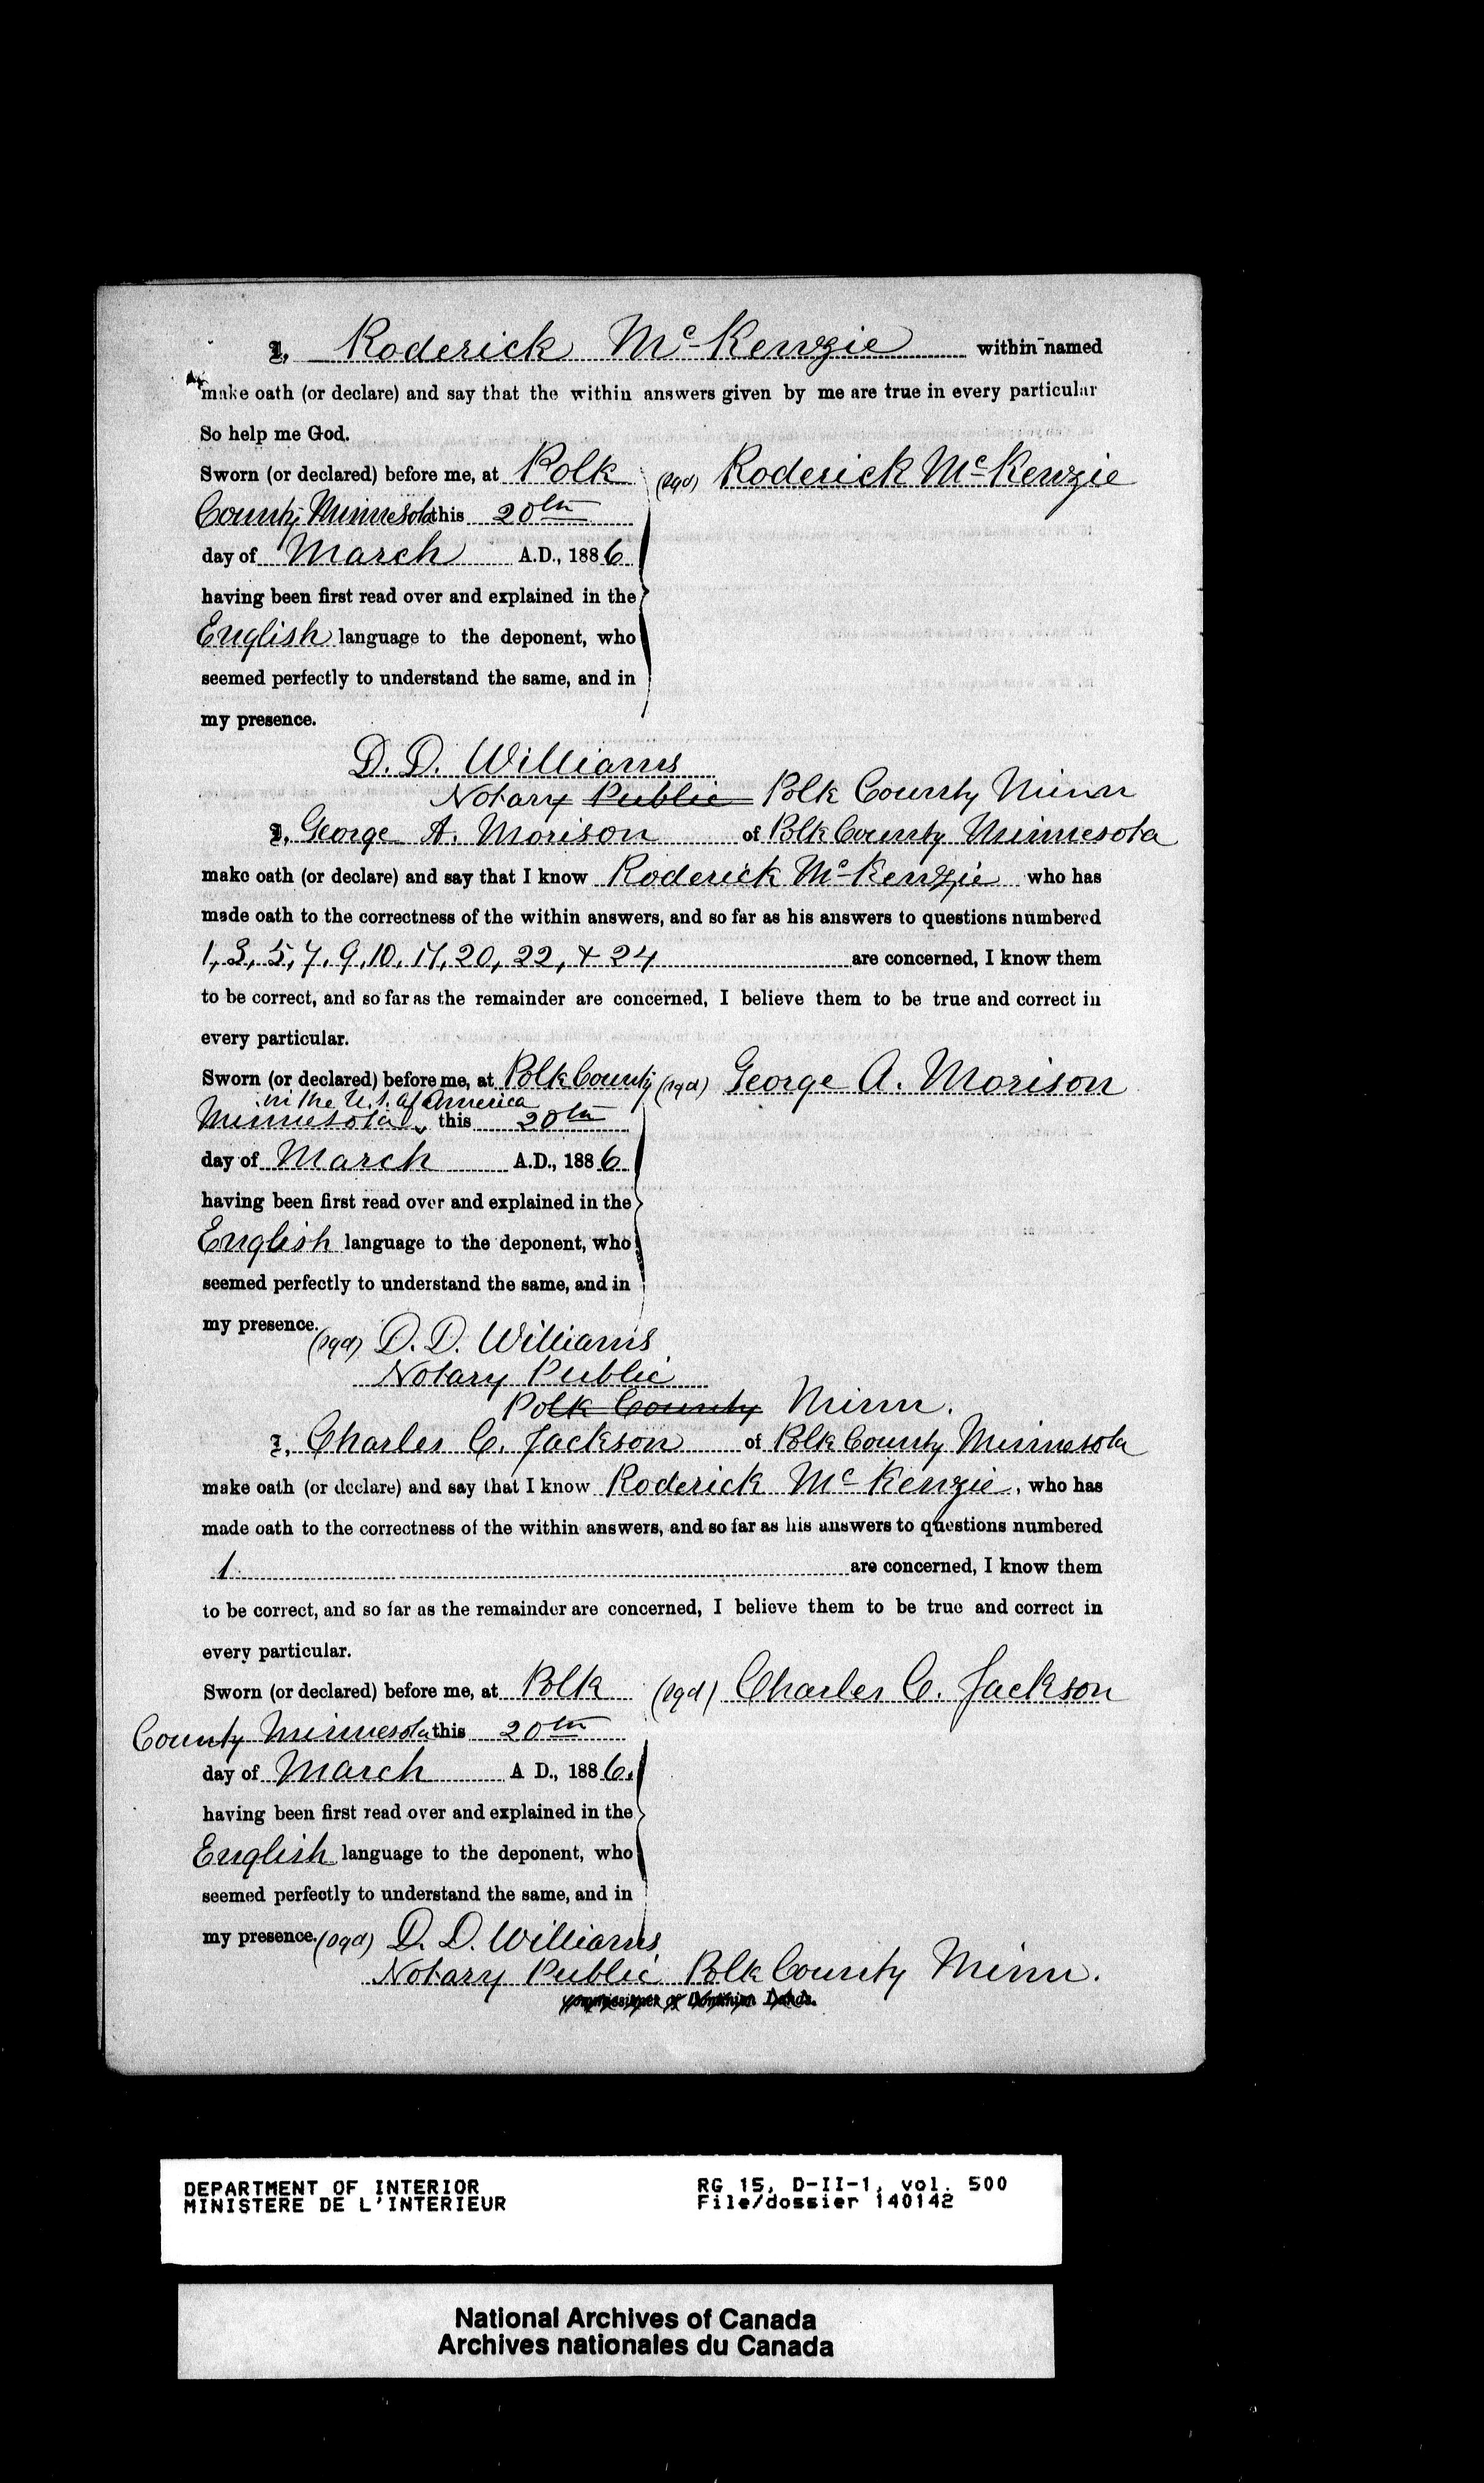 I, Roderick McKenzie within named
make oath (or declare) and say that the within answers given by me are true in every particular
So help me God.
Sworn (or declared) before me, at Polk (sgd) Roderick McKenzie
County Minnesota this 20th
day of March A.D., 1886
having been first read over and explained in the
English language to the deponent, who
seemed perfectly to understand the same, and in
my presence.
D. D. Williams
Notary Public Polk County Minn
I, George A. Morison of Polk County Minnesota
make oath (or declare) and say that I know Roderick McKenzie who has
made oath to the correctness of the within answers, and so far as his answers to questions numbered
1, 3, 5, 7, 9, 10, 17, 20, 22, & 24 are concerned, I know them
to be correct, and so far as the remainder are concerned, I believe them to be true and correct in
every particular.
Sworn (or declared) before me, at Polk County (sgd) George A. Morison
in the U.S. of America
Minnesota this 20th
day of March A.D., 1886
having been first read over and explained in the
English language to the deponent, who
seemed perfectly to understand the same, and in
my presence. (sgd) D. D. Williams
Notary Public
Polk County Minn.
I, Charles C. Jackson of Polk County Minnesota
make oath (or declare) and say that I know Roderick McKenzie, who has
made oath to the correctness of the within answers, and so far as his answers to questions numbered
1 are concerned, I know them
to be correct, and so far as the remainder are concerned, I believe them to be true and correct in
every particular.
Sworn (or declared) before me, at Polk (sgd) Charles C. Jackson
County Minnesota this 20th
day of March A D., 1886.
having been first read over and explained in the
English language to the deponent, who
seemed perfectly to understand the same, and in
my presence. (sgd) D. D. Williams
Notary Public Polk County Minn.
Commissioner of Dominion Lands.
DEPARTMENT OF INTERIOR RG 15, D-II-1, vol. 500
MINISTERE DE L'INTERIEUR File/dossier 140142
National Archives of Canada
Archives nationales du Canada